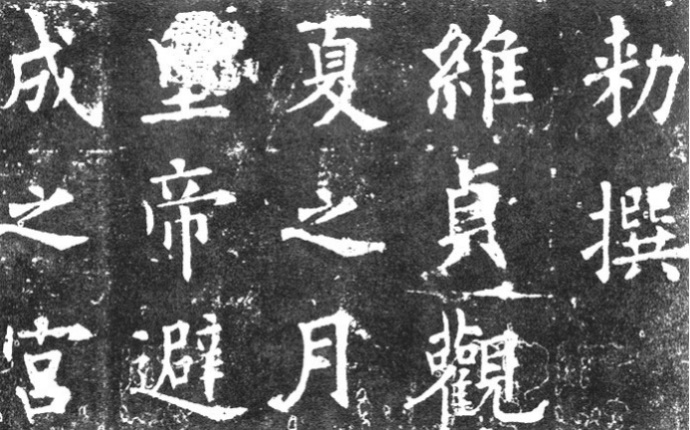 勑撰
維貞觀
夏之月
皇帝避
成之宮